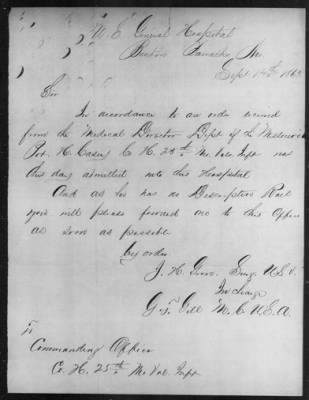 U. S. General Hospital
Benton Barracks Mo.
Sept 14th 1863
Sir
In accordance to an order received
from the Medical Director Dept of the Missouri
Pvt. H. Casey Co H. 25th Mo Vol Inft was
this day admitted into this Hospital
And as he has no Descriptive Roll
you will please forward one to this Office
as soon as possible
by order
J. H. Surg. U S V.
In charge
M. C. U.S.A.
To
Commanding Officer
Co. H. 25th Mo Vol. Inft